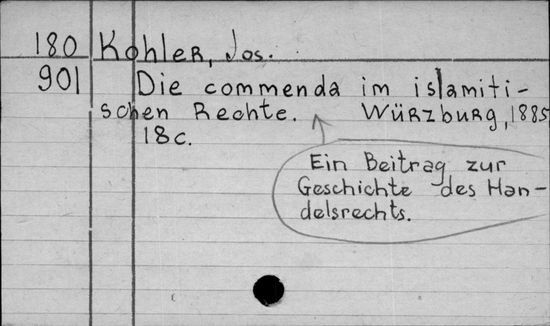 180 Kohler, Jos.
901 Die commenda im islamiti-
schen Rechte. Würzburg, 1885
18 c.
Ein Beitrag zur
Geschichte des Han-
delsrechts.